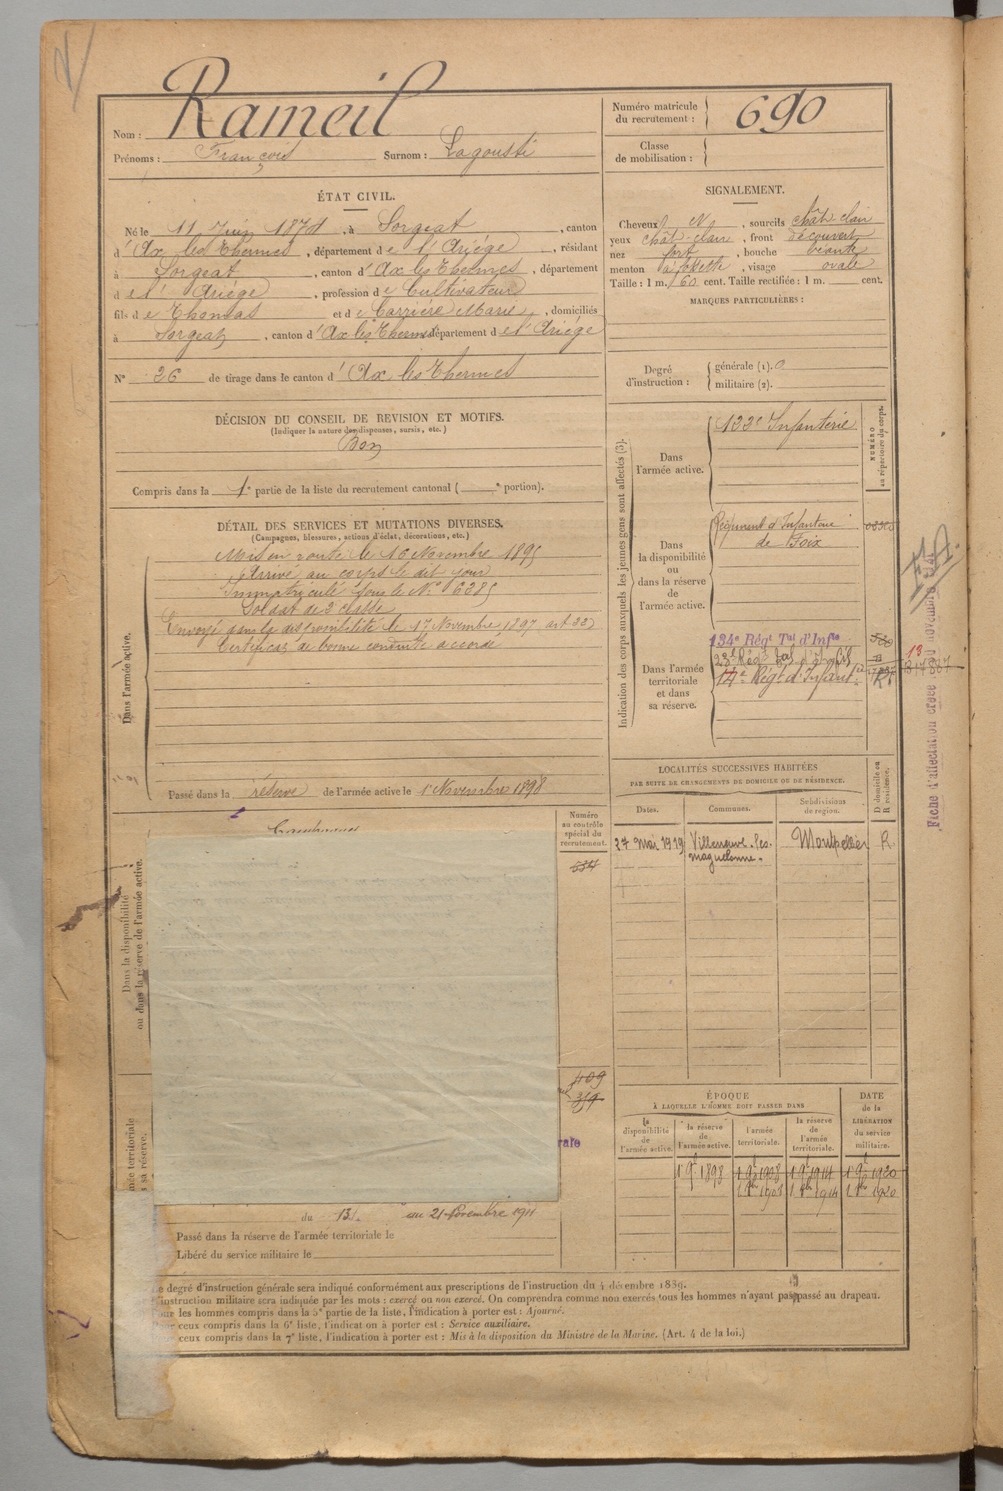 Nom : Rameil
Prénoms : François Surnom : Lagousti
Numéro matricule du recrutement : 690
Classe de mobilisation :
ÉTAT CIVIL.
Né le 11 Juin 1874, à Sorgeat, canton
d'Ax les Thermes, département de l'Ariége, résidant
à Sorgeat, canton d'Ax les Thermes, département
de l'Ariége, profession de Cultivateur
fils de Thomas et de Carriére Marie, domiciliés
à Sorgeat, canton d'Ax les Thermes département de l'Ariége
N° 26 de tirage dans le canton d'Ax les Thermes
SIGNALEMENT.
Cheveux N, sourcils chât-clair
yeux chât-clair, front découvert
nez fort, bouche
menton, visage ovale
Taille : 1 m. 60 cent. Taille rectifiée : 1 m. cent.
MARQUES PARTICULIÈRES :
Degré d'instruction : générale (1). 0
militaire (2).
DÉCISION DU CONSEIL DE REVISION ET MOTIFS.
(Indiquer la nature des dispenses, sursis, etc.)
Bon
Compris dans la 1e partie de la liste du recrutement cantonal ( e portion).
DÉTAIL DES SERVICES ET MUTATIONS DIVERSES.
(Campagnes, blessures, actions d'éclat, décorations, etc.)
Dans l'armée active.
Mis en route le 16 Novembre 1895
Arrivé au corps le dit jour
Immatriculé sous le N° 6285
Soldat de 2 classe
Envoyé dans la disponibilité le 17 Novembre 1897 art 22
Certificat de bonne conduite accordé
Passé dans la réserve de l'armée active le 1 Novembre 1898
Indication des corps auxquels les jeunes gens sont affectés (3).
NUMÉRO au répertoire du corps.
Dans l'armée active.
122e Infanterie
Dans la disponibilité ou dans la réserve de l'armée active.
Régiment d'Infanterie
de Foix
Dans l'armée territoriale et dans sa réserve.
134e Régt Tal d'Infie
14e Régt d'Infant
Fiche d'affectation créée
LOCALITÉS SUCCESSIVES HABITÉES
PAR SUITE DE CHANGEMENTS DE DOMICILE OU DE RÉSIDENCE.
Dates. Communes. Subdivisions de région. D domicile ou R résidence.
27 Mai 1919 Villeneuve-les-maguelonne. Montpellier R
Numéro au contrôle spécial du recrutement.
Dans la disponibilité ou dans la réserve de l'armée active.
409
ÉPOQUE
À LAQUELLE L'HOMME DOIT PASSER DANS
la disponibilité de l'armée active. la réserve de l'armée active. l'armée territoriale. la réserve de l'armée territoriale.
DATE de la LIBÉRATION du service militaire.
1 9e 1898 1 9e 1908 1 9e 1914 1 9e 1920
1908 1914 1920
du 13 au 21 Novembre 1911
Passé dans la réserve de l'armée territoriale le
Libéré du service militaire le
le degré d'instruction générale sera indiqué conformément aux prescriptions de l'instruction du 4 décembre 1889.
instruction militaire sera indiquée par les mots : exercé ou non exercé. On comprendra comme non exercés tous les hommes n'ayant pas passé au drapeau.
les hommes compris dans la 5e partie de la liste, l'indication à porter est : Ajourné.
ceux compris dans la 6e liste, l'indication à porter est : Service auxiliaire.
ceux compris dans la 7e liste, l'indication à porter est : Mis à la disposition du Ministre de la Marine. (Art. 4 de la loi.)